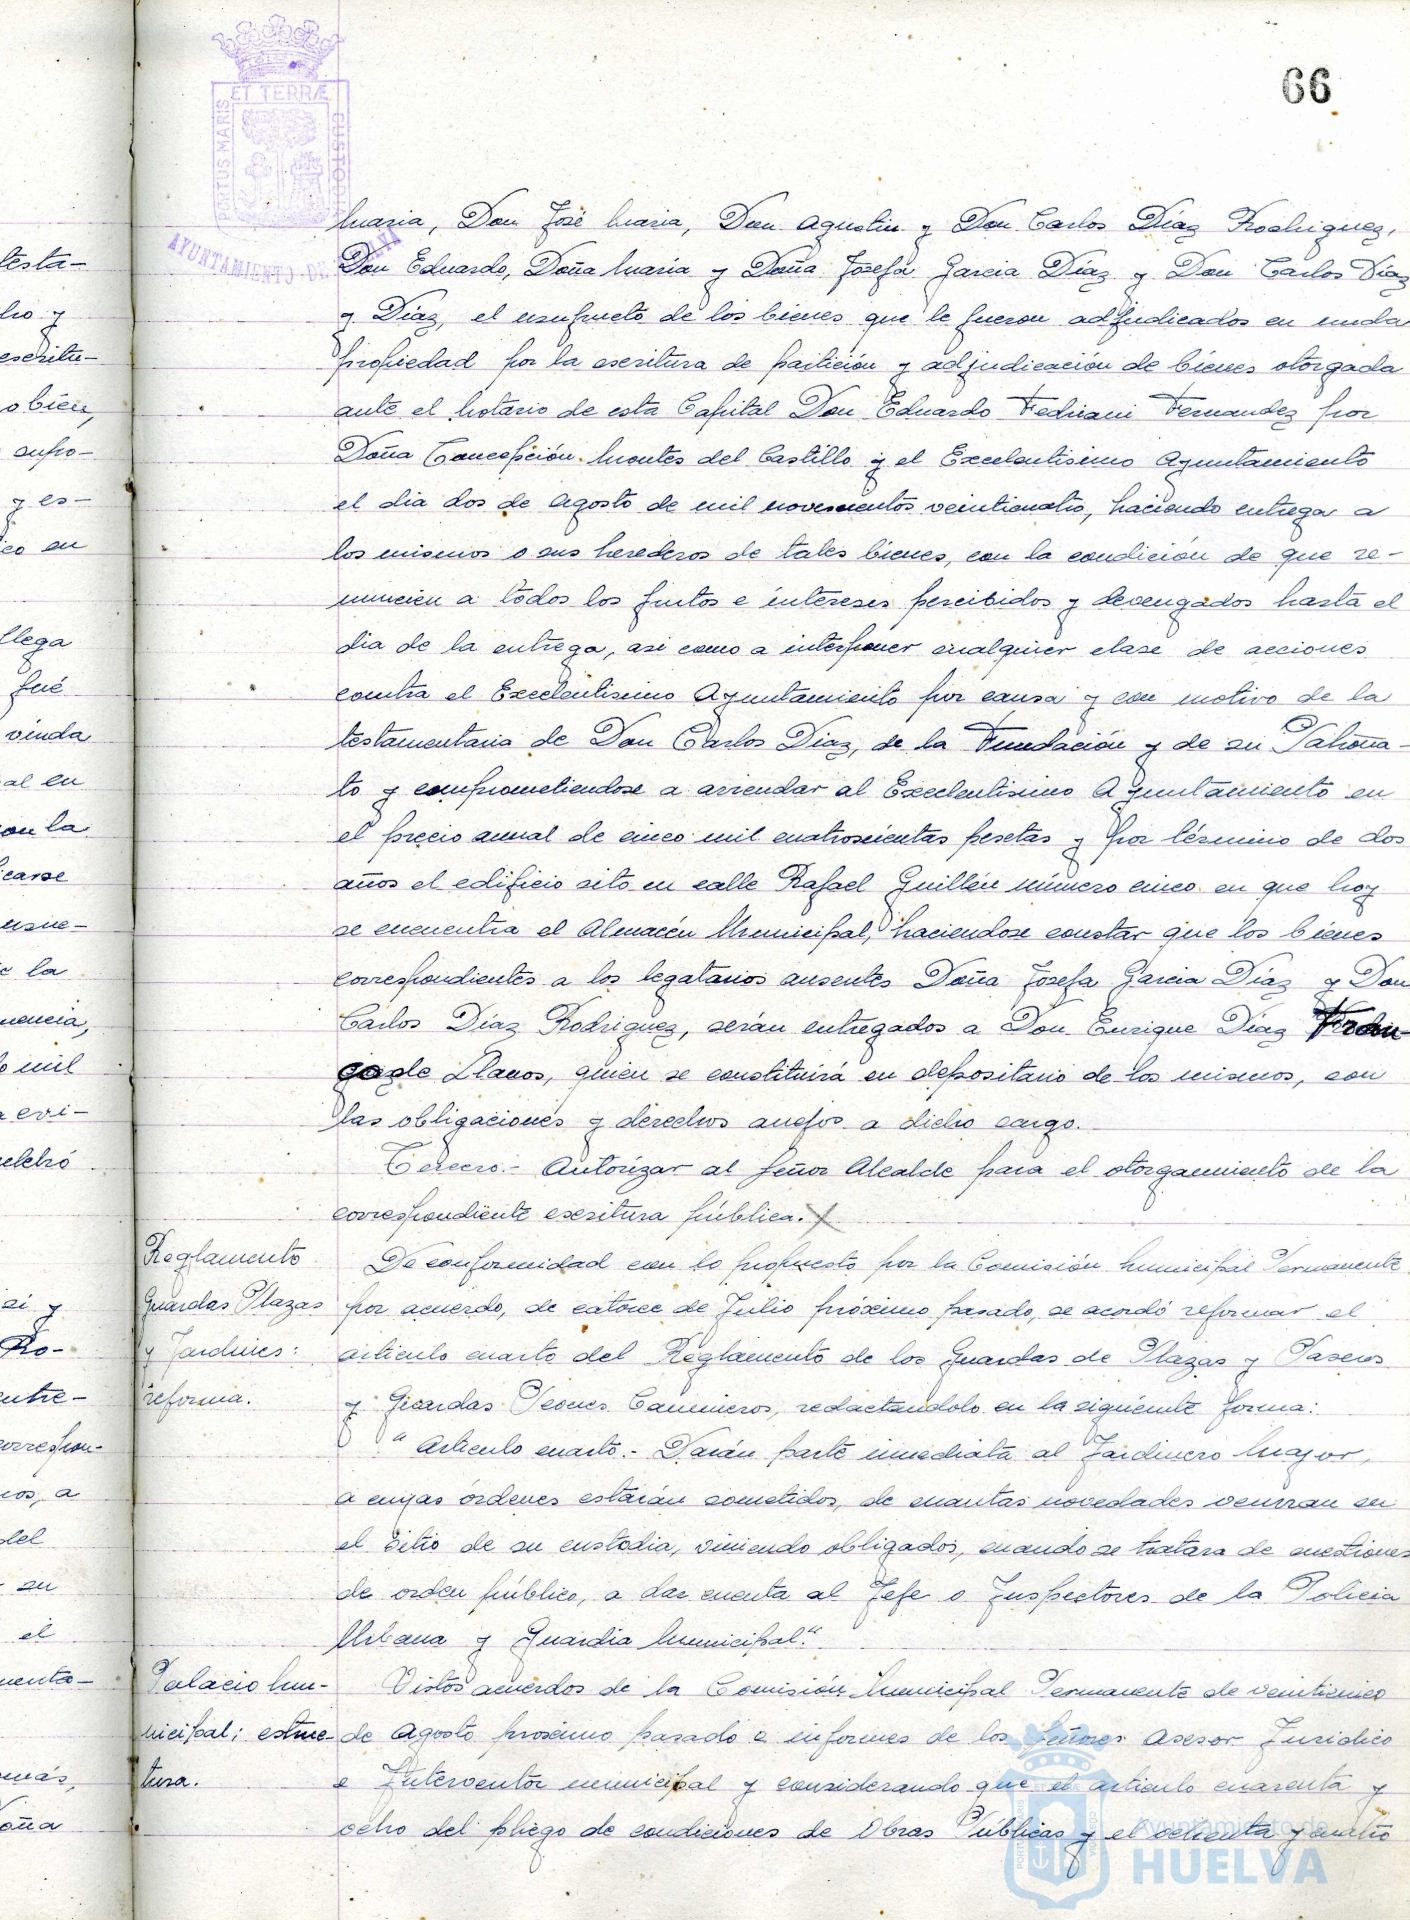 66
PORTUS MARIS ET TERRÆ CUSTODIA
AYUNTAMIENTO DE HUELVA
Maria, Don José Maria, Don Agustin y Don Carlos Díaz Rodriguez,
Don Eduardo, Doña María y Doña Josefa Garcia Díaz y Don Carlos Diaz
y Díaz, el usufructo de los bienes que le fueron adjudicados en nuda
propiedad por la escritura de partición y adjudicación de bienes otorgada
ante el Notario de esta Capital Don Eduardo Fedriani Fernandez por
Doña Concepción Montes del Castillo y el Excelentisimo Ayuntamiento
el dia dos de Agosto de mil novecientos veinticuatro, haciendo entrega a
los mismos o sus herederos de tales bienes, con la condición de que re-
nuncien a todos los frutos e intereses percibidos y devengados hasta el
dia de la entrega, asi como a interponer cualquier clase de acciones
contra el Excelentisimo Ayuntamiento por causa y con motivo de la
testamentaria de Don Carlos Diaz, de la Fundación y de su Patrona-
to y comprometiendose a arrendar al Excelentisimo Ayuntamiento en
el precio anual de cinco mil cuatrocientas pesetas y por término de dos
años el edificio sito en calle Rafael Guillén número cinco en que hoy
se encuentra el Almacén Municipal, haciendose constar que los bienes
correspondientes a los legatarios ausentes Doña Josefa Garcia Díaz y Don
Carlos Díaz Rodriguez, serán entregados a Don Enrique Díaz
de Llanos, quien se constituirá en depositario de los mismos, con
las obligaciones y derechos anejos a dicho cargo.
Tercero.- Autorizar al Señor Alcalde para el otorgamiento de la
correspondiente escritura pública. X
Reglamento
Guardas Plazas
y Jardines:
reforma.
De conformidad con lo propuesto por la Comisión Municipal Permanente
por acuerdo, de catorce de Julio próximo pasado, se acordó reformar el
articulo cuarto del Reglamento de los Guardas de Plazas y Paseos
y Guardas Peones Camineros, redactandolo en la siguiente forma:
" Articulo cuarto.- Darán parte inmediata al Jardinero Mayor,
a cuyas órdenes estarán sometidos, de cuantas novedades ocurran en
el sitio de su custodia, viniendo obligados, cuando se tratara de cuestiones
de orden público, a dar cuenta al Jefe o Inspectores de la Policia
Urbana y Guardia Municipal."
Palacio Mu-
nicipal; estruc-
tura.
Vistos acuerdos de la Comisión Municipal Permanente de veinticinco
de Agosto proximo pasado e informes de los Señores Asesor Juridico
e Interventor municipal y considerando que el articulo cuarenta y
ocho del pliego de condiciones de Obras Públicas y el ochenta y cuatro
testa-
escritu-
o bien,
supo-
y es-
en
llega
fué
viuda
al en
la
usue-
la
mil
celebró
si y
Ro-
entre-
correspon-
a
del
su
el
más,
Doña
Ayuntamiento de
HUELVA